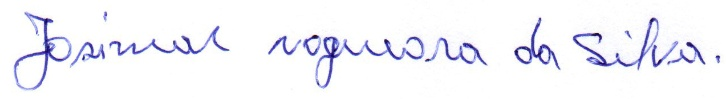 Josimar nogueira da Silva.